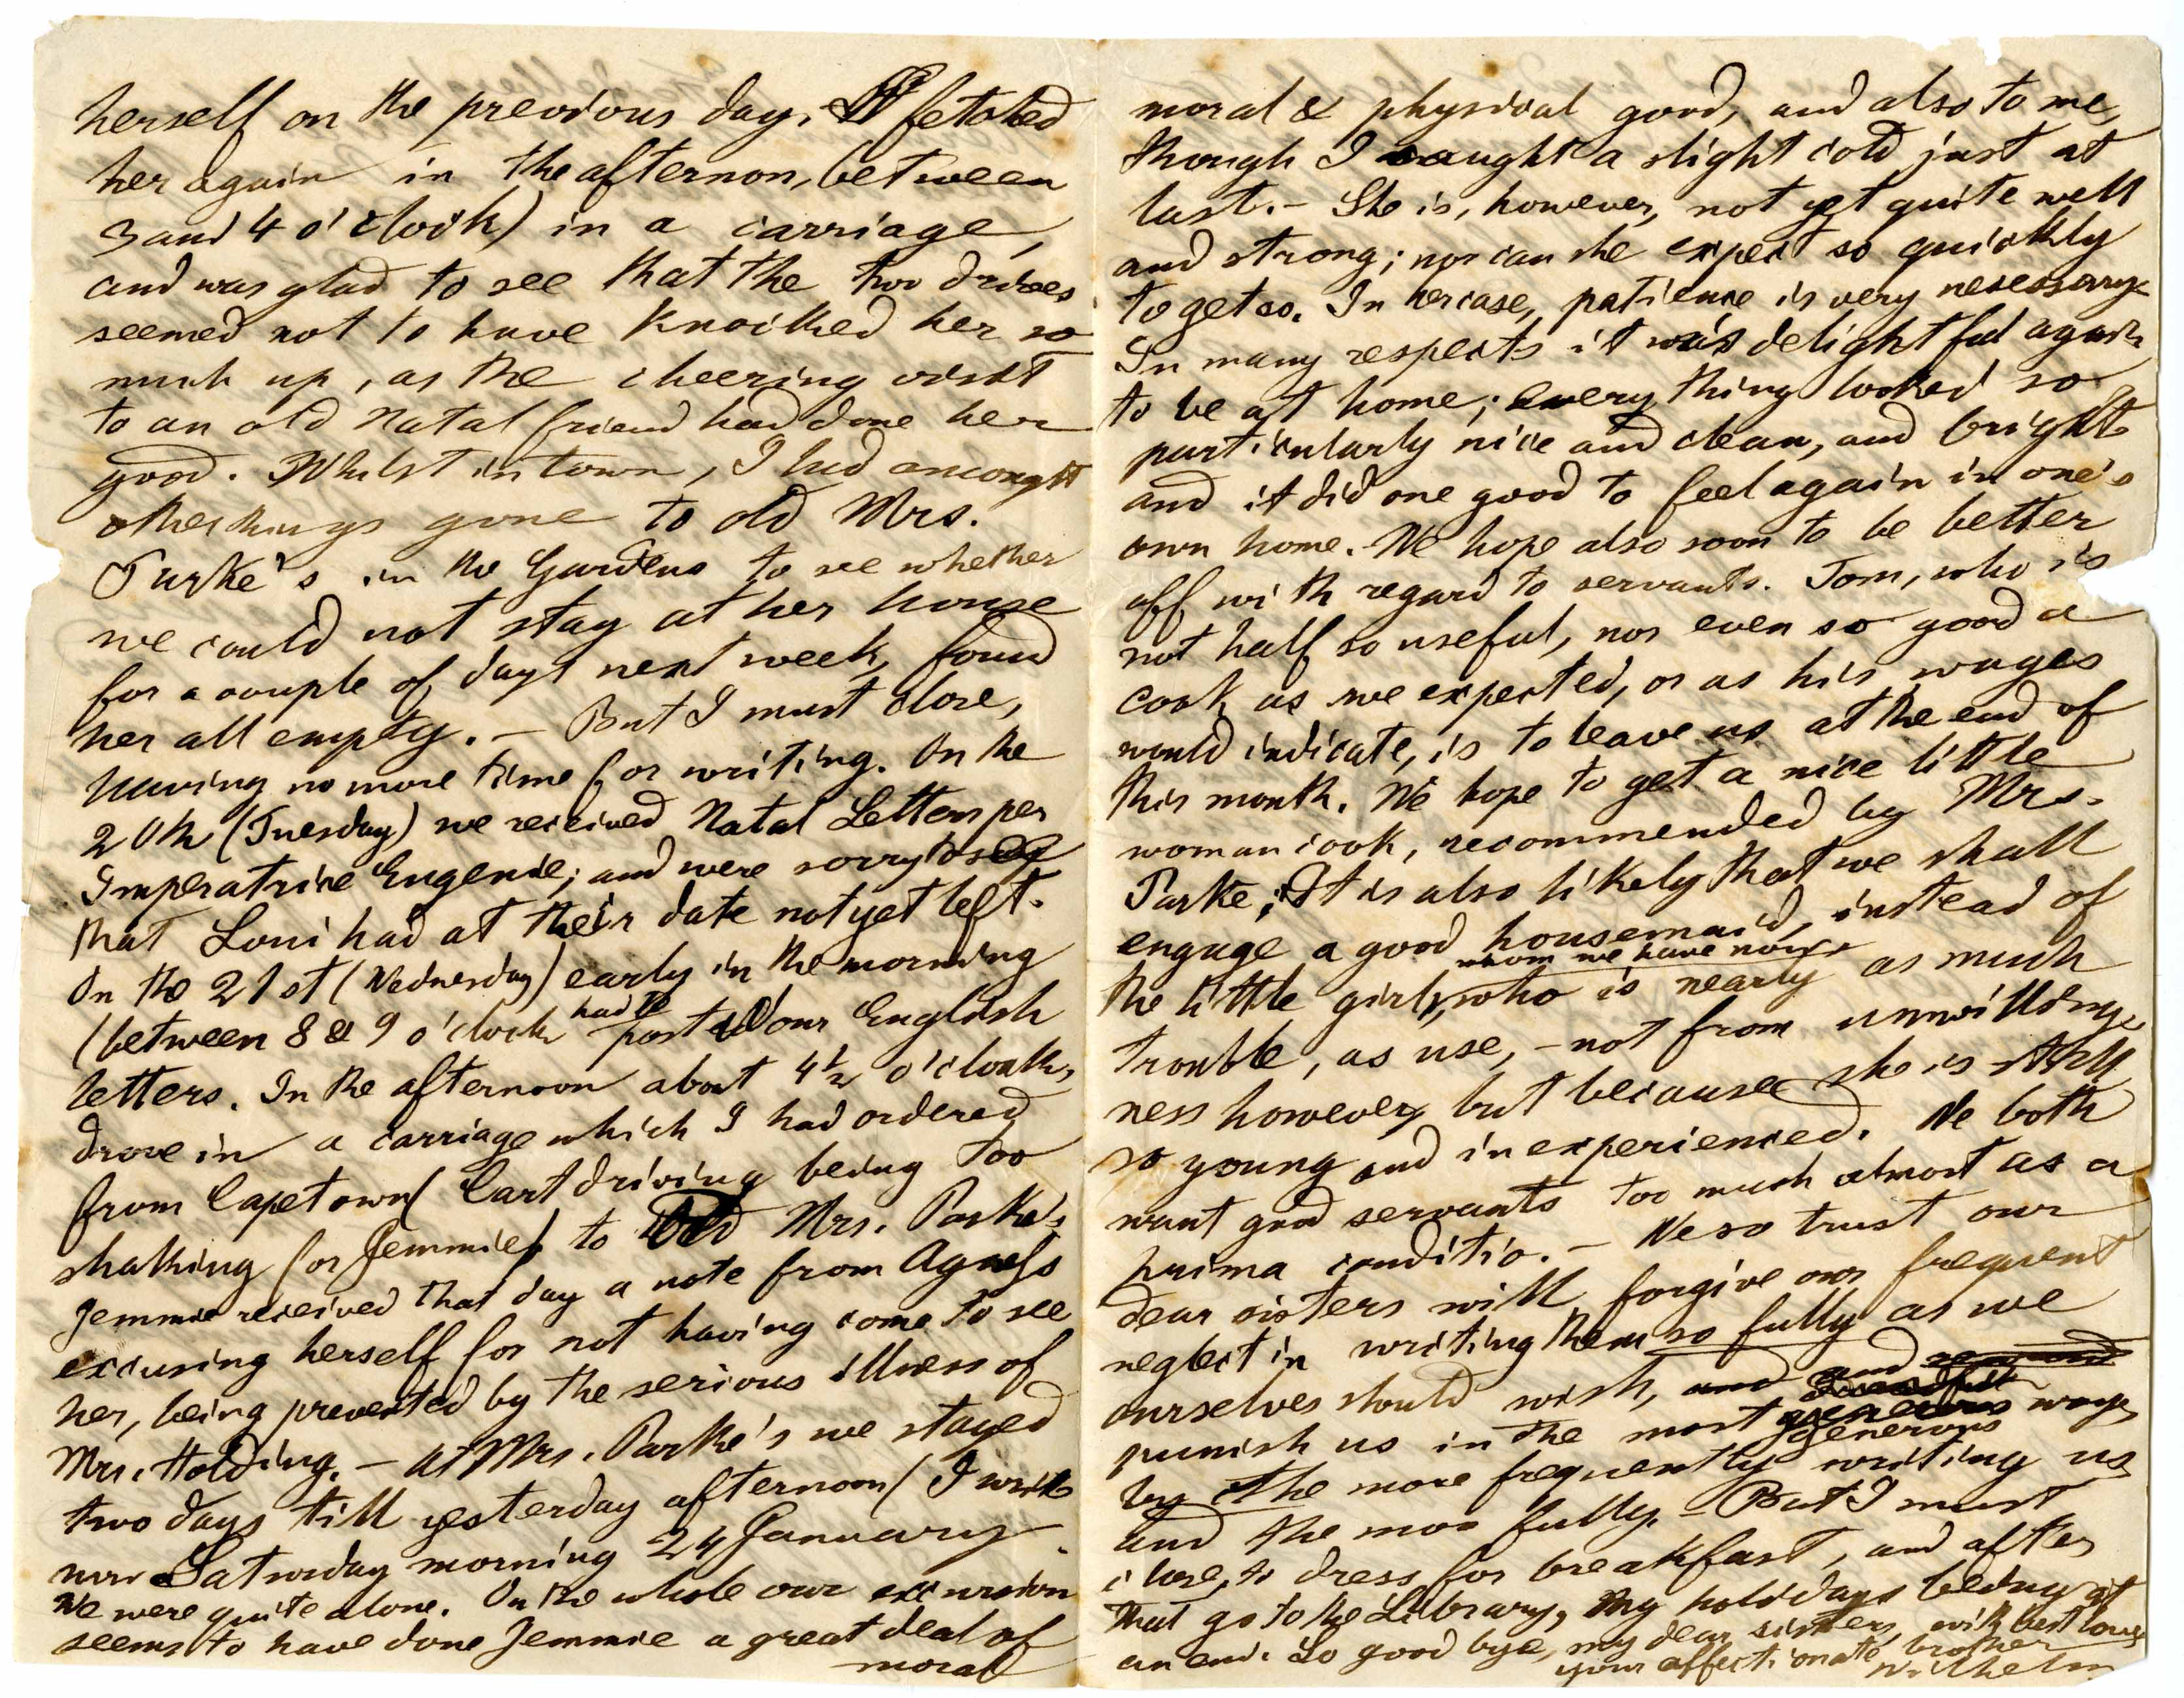 herself on the previous day. I fetched
her again in the afternon, between
3 and 4 o'clock) in a carriage,
and was glad to see that the two drives
seemed not to have knocked her so
much up, as the cheering visit
to an old Natal friend had done her
good. Whilst in town, I had amongst
other things gone to old Mrs.
Parke's in the Gardens to see whether
we could not stay at her house
for a couple of days next week, found
her all empty. – But I must close,
having no more time for writing. On the
20th (Tuesday) we received Natal Letters per
Imperatrice Eugenie; and were sorry to see
that Loui had at their date not yet left.
On the 21st (Wednesday) early in the morning
(between 8 & 9 o'clock had to post our English
letters. In the afternoon about 4½ o'clock,
drove in a carriage which I had ordered
from Capetown (Cart driving being too
shaking for Jemmie) to Mrs. Parke's
Jemmie received that day a note from Agness
excusing herself for not having come to see
her, being prevented by the serious illness of
Mrs. Holding. – At Mrs. Parke's we stayed
two days till yesterday afternoon (I write
now Saturday morning 24 January.
We were quite alone. On the whole our excursion
seems to have done Jemmie a great deal of
moral
moral & physical good, and also to me,
though I caught a slight cold just at
last. – She is, however, not yet quite well
and strong; nor can she expect so quickly
to get so. In her case, patience is very necessary.
In many respects it was delightful again
to be at home; every thing looked so
particularly nice and clean, and bright
and it did one good to feel again in one's
own home. We hope also soon to be better
off with regard to servants. Tom, who is
not half so useful, nor even so good a
cook as we expected, or as his wages
would indicate, is to leave us at the end of
this month. We hope to get a nice little
woman cook, recommended by Mrs.
Parke; It is also likely that we shall
engage a good housemaid, instead of
the little girl, whom we have now, who is nearly as much
trouble, as use, – not from unwilling-
ness however, but because she is still
so young and inexperienced. We both
want good servants too much almost as a
prima conditio. – We so trust our
dear sisters will forgive our frequent
neglect in writing them so fully as we
ourselves should wish, and
punish us in the most generous way
by the more frequently writing us
and the more fully. – But I must
close, to dress for breakfast, and after
that go to the Library, my holidays being at
an end. So good bye, my dear sisters, with best love
your affectionate brother
Wilhelm